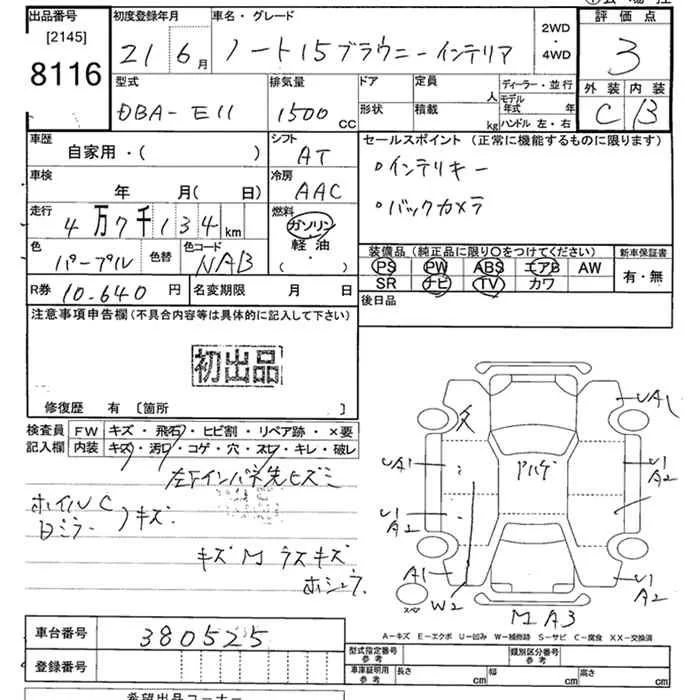 出品番号 初度登録年月 車名・グレード 評価点
[2145] 8116
21年6月 ノート15ブラウニーインテリア 2WD・4WD 3
型式 排気量 ドア 定員 ディーラー・並行 外装 内装
DBA-E11 1500 CC 人 モデル年式 年 C B
形状 積載 kg ハンドル 左・右
車歴 シフト セールスポイント (正常に機能するものに限ります)
自家用・( ) AT
・インテリキー
車検 冷房
年 月( 日) AAC
・バックカメラ
走行 燃料
4万7千134km ガソリン・軽油 ( ・ )
色 色替 色コード
パープル NAB
装備品(純正品に限り〇をつけてください) 新車保証書
PS PW ABS エアB AW 有・無
SR ナビ TV カワ
R券 10.640円 名変期限 月 日
後日品
注意事項申告欄(不具合内容等は具体的に記入して下さい)
初出品
修復歴 有 〔箇所 〕
検査員記入欄 FW キズ・飛石・ヒビ割・リペア跡・×要
内装 キズ・汚レ・コゲ・穴・スレ・キレ・破レ
ホイルC
Bミラー キズ
キズM
UA1
UA1
U1 A2
U1 A2
A1
W2
U1 A2
M A3
スペア
A-キズ E-エクボ U-凹み W-補修跡 S-サビ C-腐食 XX-交換済
車台番号 380525
登録番号
型式指定番号 参考 類別区分番号 参考
車庫証明用 参考 長さ cm 幅 cm 高さ cm
希望出品コーナー